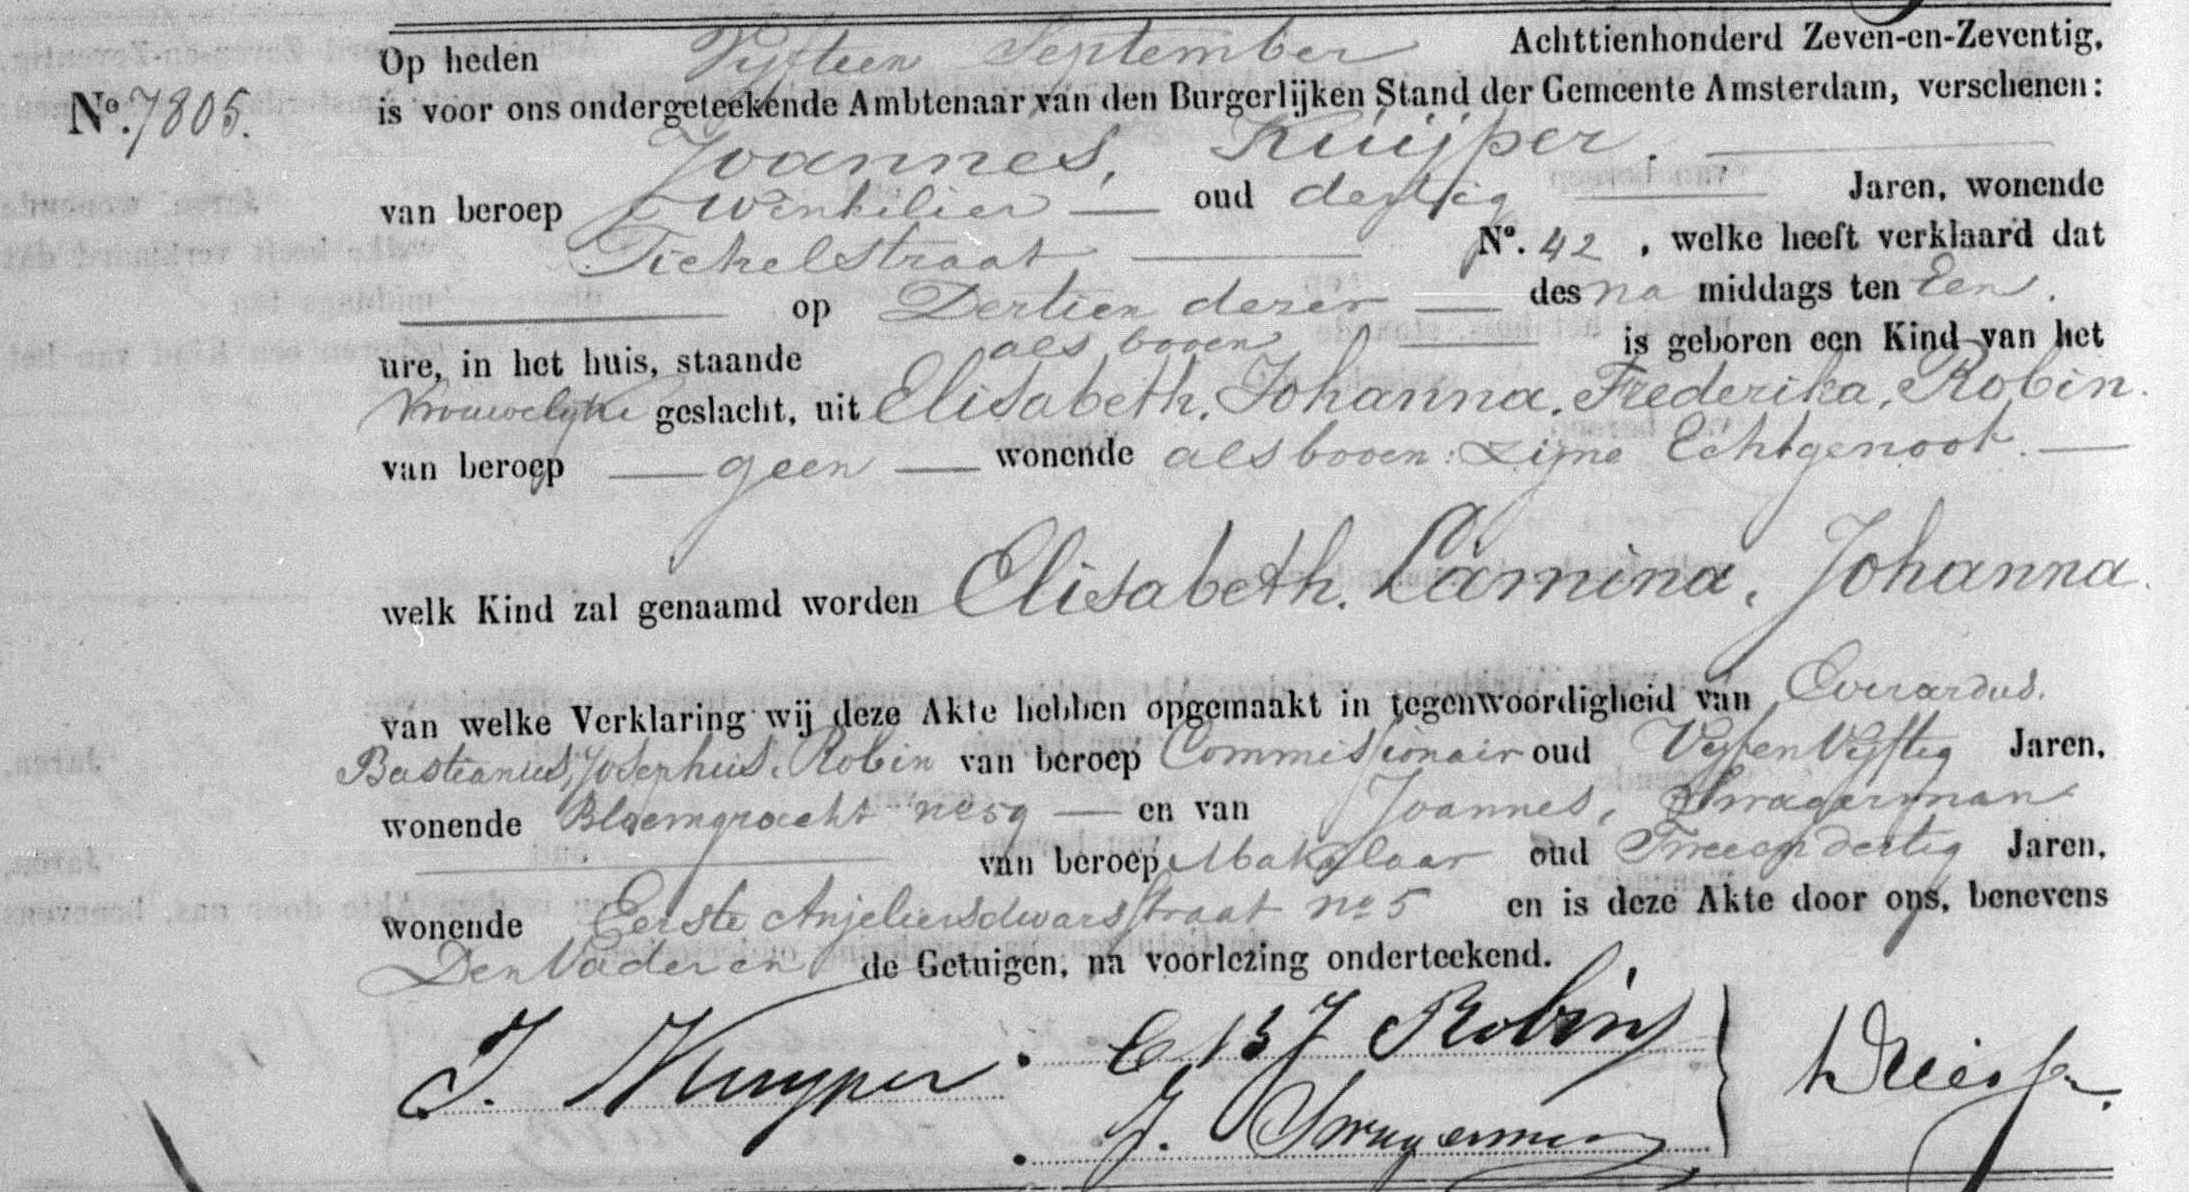 Op heden Vyftien September Achttienhonderd Zeven-en-Zeventig,
No. 7805. is voor ons ondergeteekende Ambtenaar van den Burgerlijken Stand der Gemeente Amsterdam, verschenen:
Joannes, Kuijper.
van beroep Winkelier oud dertig Jaren, wonende
Tichelstraat No. 42, welke heeft verklaard dat
op Dertien dezer des na middags ten Een.
ure, in het huis, staande als boven is geboren een Kind van het
Vrouwelyke geslacht, uit Elisabeth, Johanna, Frederika, Robin.
van beroep geen wonende als boven: zijne Echtgenoot.
welk Kind zal genaamd worden Elisabeth, Johanna.
van welke Verklaring wij deze Akte hebben opgemaakt in tegenwoordigheid van Everardus.
Bastianus, Josephus, Robin van beroep Commissionair oud Vyfenvyftig Jaren,
wonende Bloemgracht no 59 en van Joannes, Swagerman
van beroep Makelaar oud Tweeendertig Jaren,
wonende Eerste Anjeliersdwarsstraat no 5 en is deze Akte door ons, benevens
Den Vader en de Getuigen, na voorlezing onderteekend.
J. Kuyper. E B J Robin
J. Swagerman